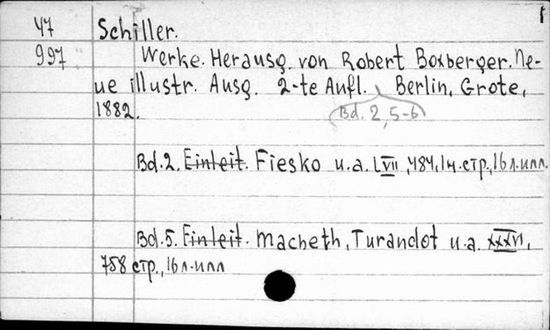 47 Schiller.
997 Werke. Herausg. von Robert Boxberger. Ne-
ue illustr. Ausg. 2-te Aufl. Berlin, Grote,
1882.
Bd. 2, 5-6
Bd. 2. Einleit. Fiesko u.a. LVII, 484, IH. стр., 16 л. илл.
Bd. 5. Einleit. Macbeth, Turandot u.a. XXXVI,
758 стр., 16 л. илл